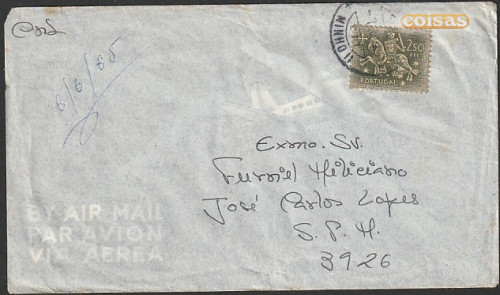 coisas
MINHO
2$50
PORTUGAL
6/6/65
Exmo. Sr.
Furriel Miliciano
José Carlos Lopes
S. P. M.
3926
BY AIR MAIL
PAR AVION
VIA AEREA